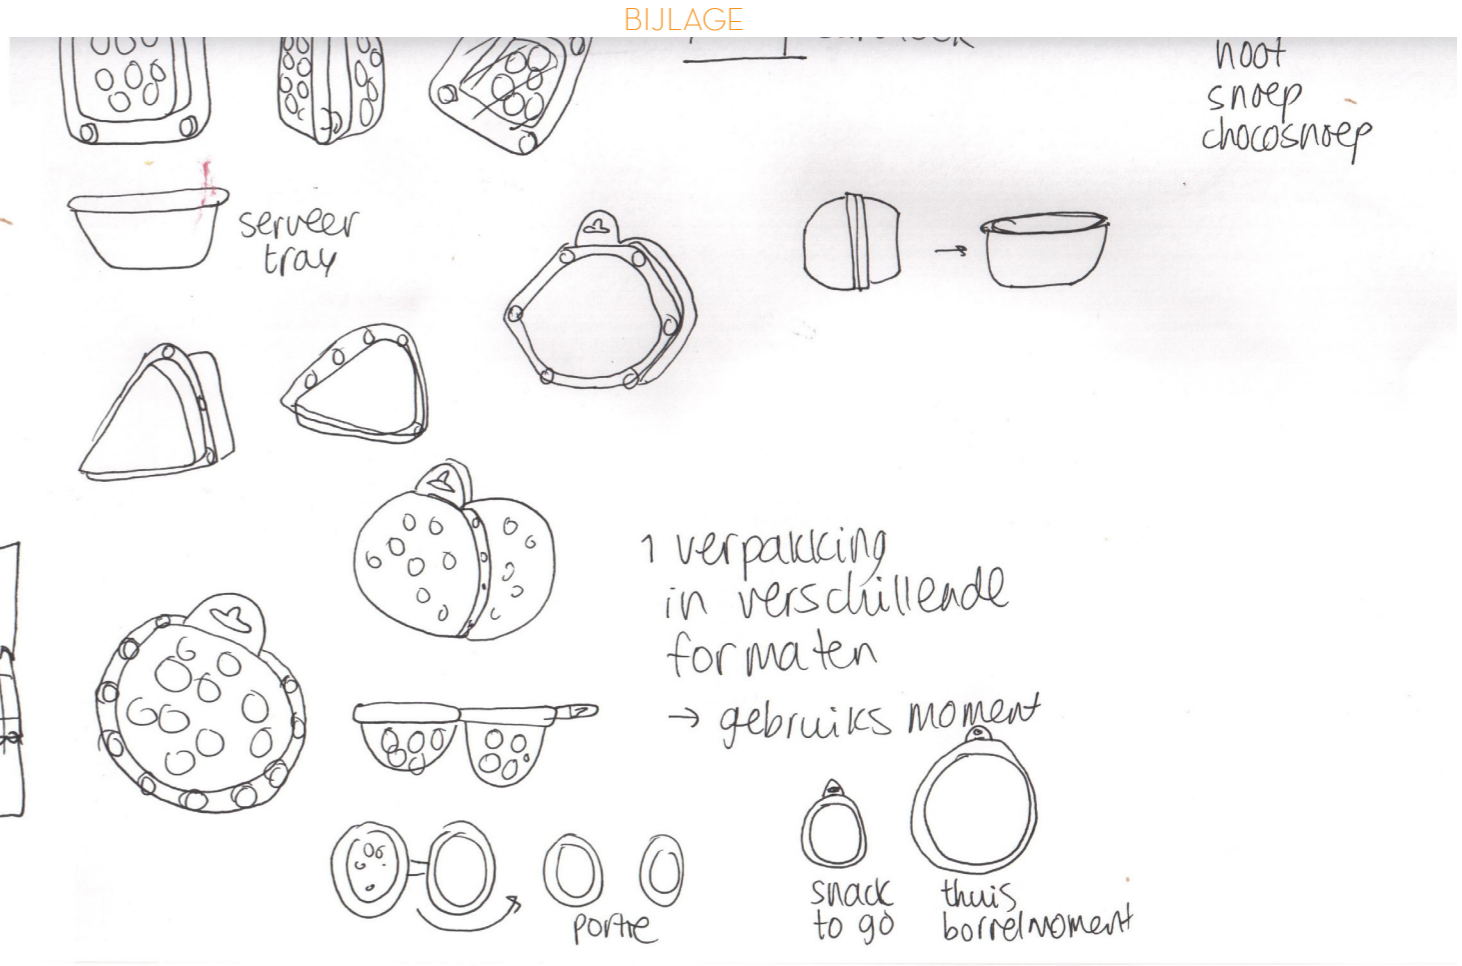 BIJLAGE
noot
snoep
chocosnoep
serveer
tray
1 verpakking
in verschillende
formaten
→ gebruiks moment
portie
snack
to go
thuis
borrelmoment